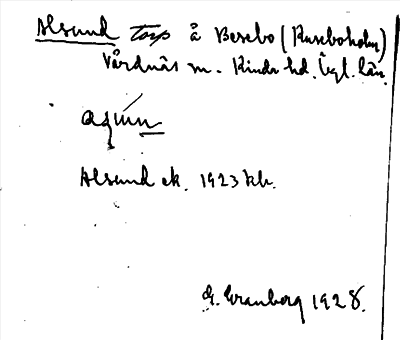 Alsund Torp å Bosebo (Kuseboholm)
Vårdnäs sn. Kinda hd. Ögl. län.
Alsund ek. 1923 kb.
G. Granberg 1928.